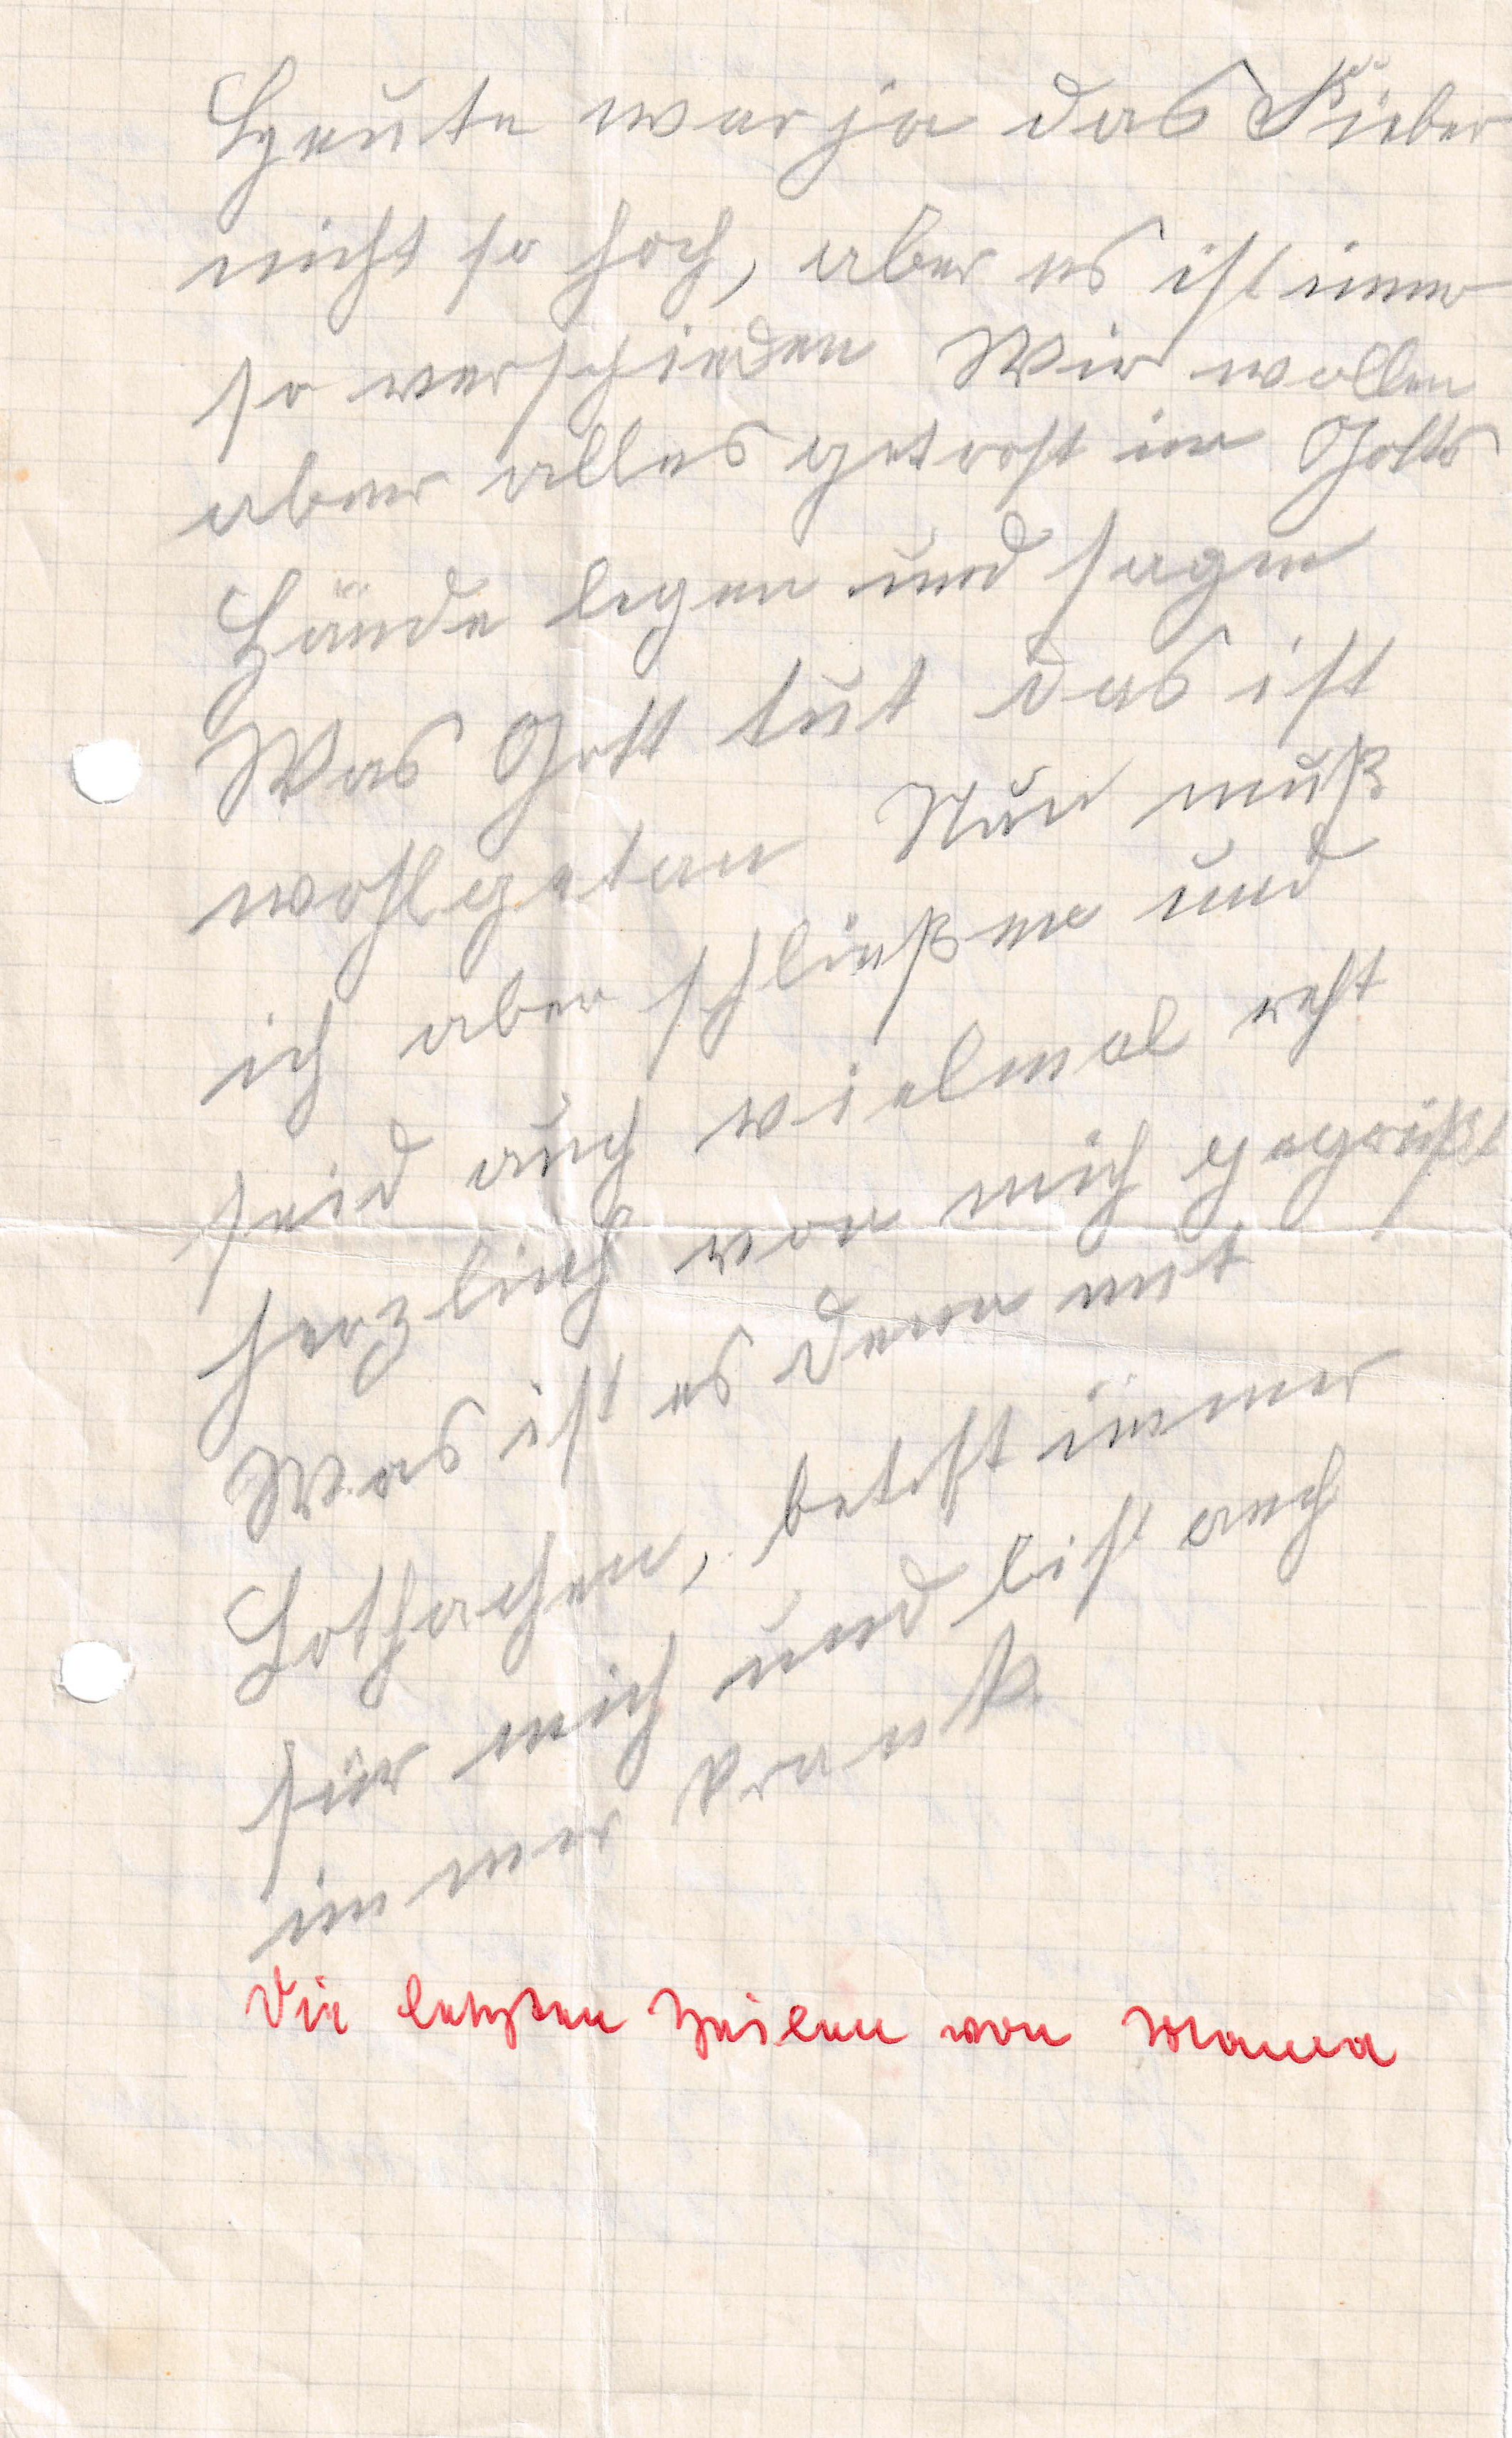 Heute war ja das Fieber
nicht so hoch, aber es ist immer
so verschieden Wir wollen
aber alles getrost in Gottes
Hände legen und sagen
Was Gott tut das ist
wohlgetan Nun muß
ich aber schließen und
seid auch vielmal recht
herzlich von mich gegrüßt
Was ist es denn mit
betest immer
für mich und bist auch
immer krank
Die letzten Zeilen von Mama